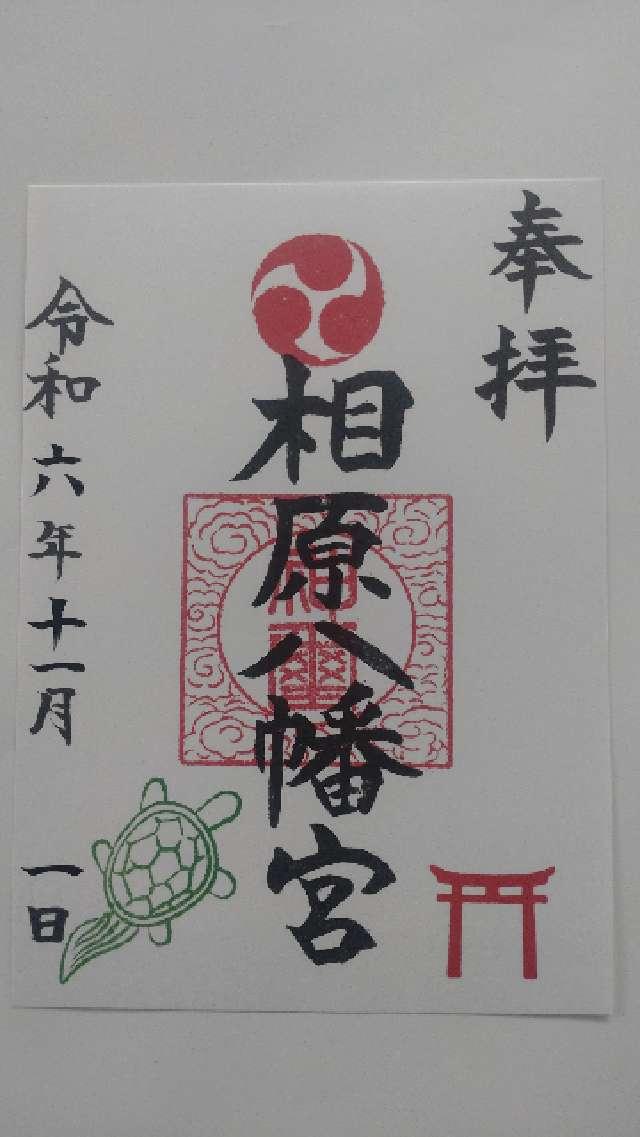 奉拝
相原八幡宮
令和六年十一月一日